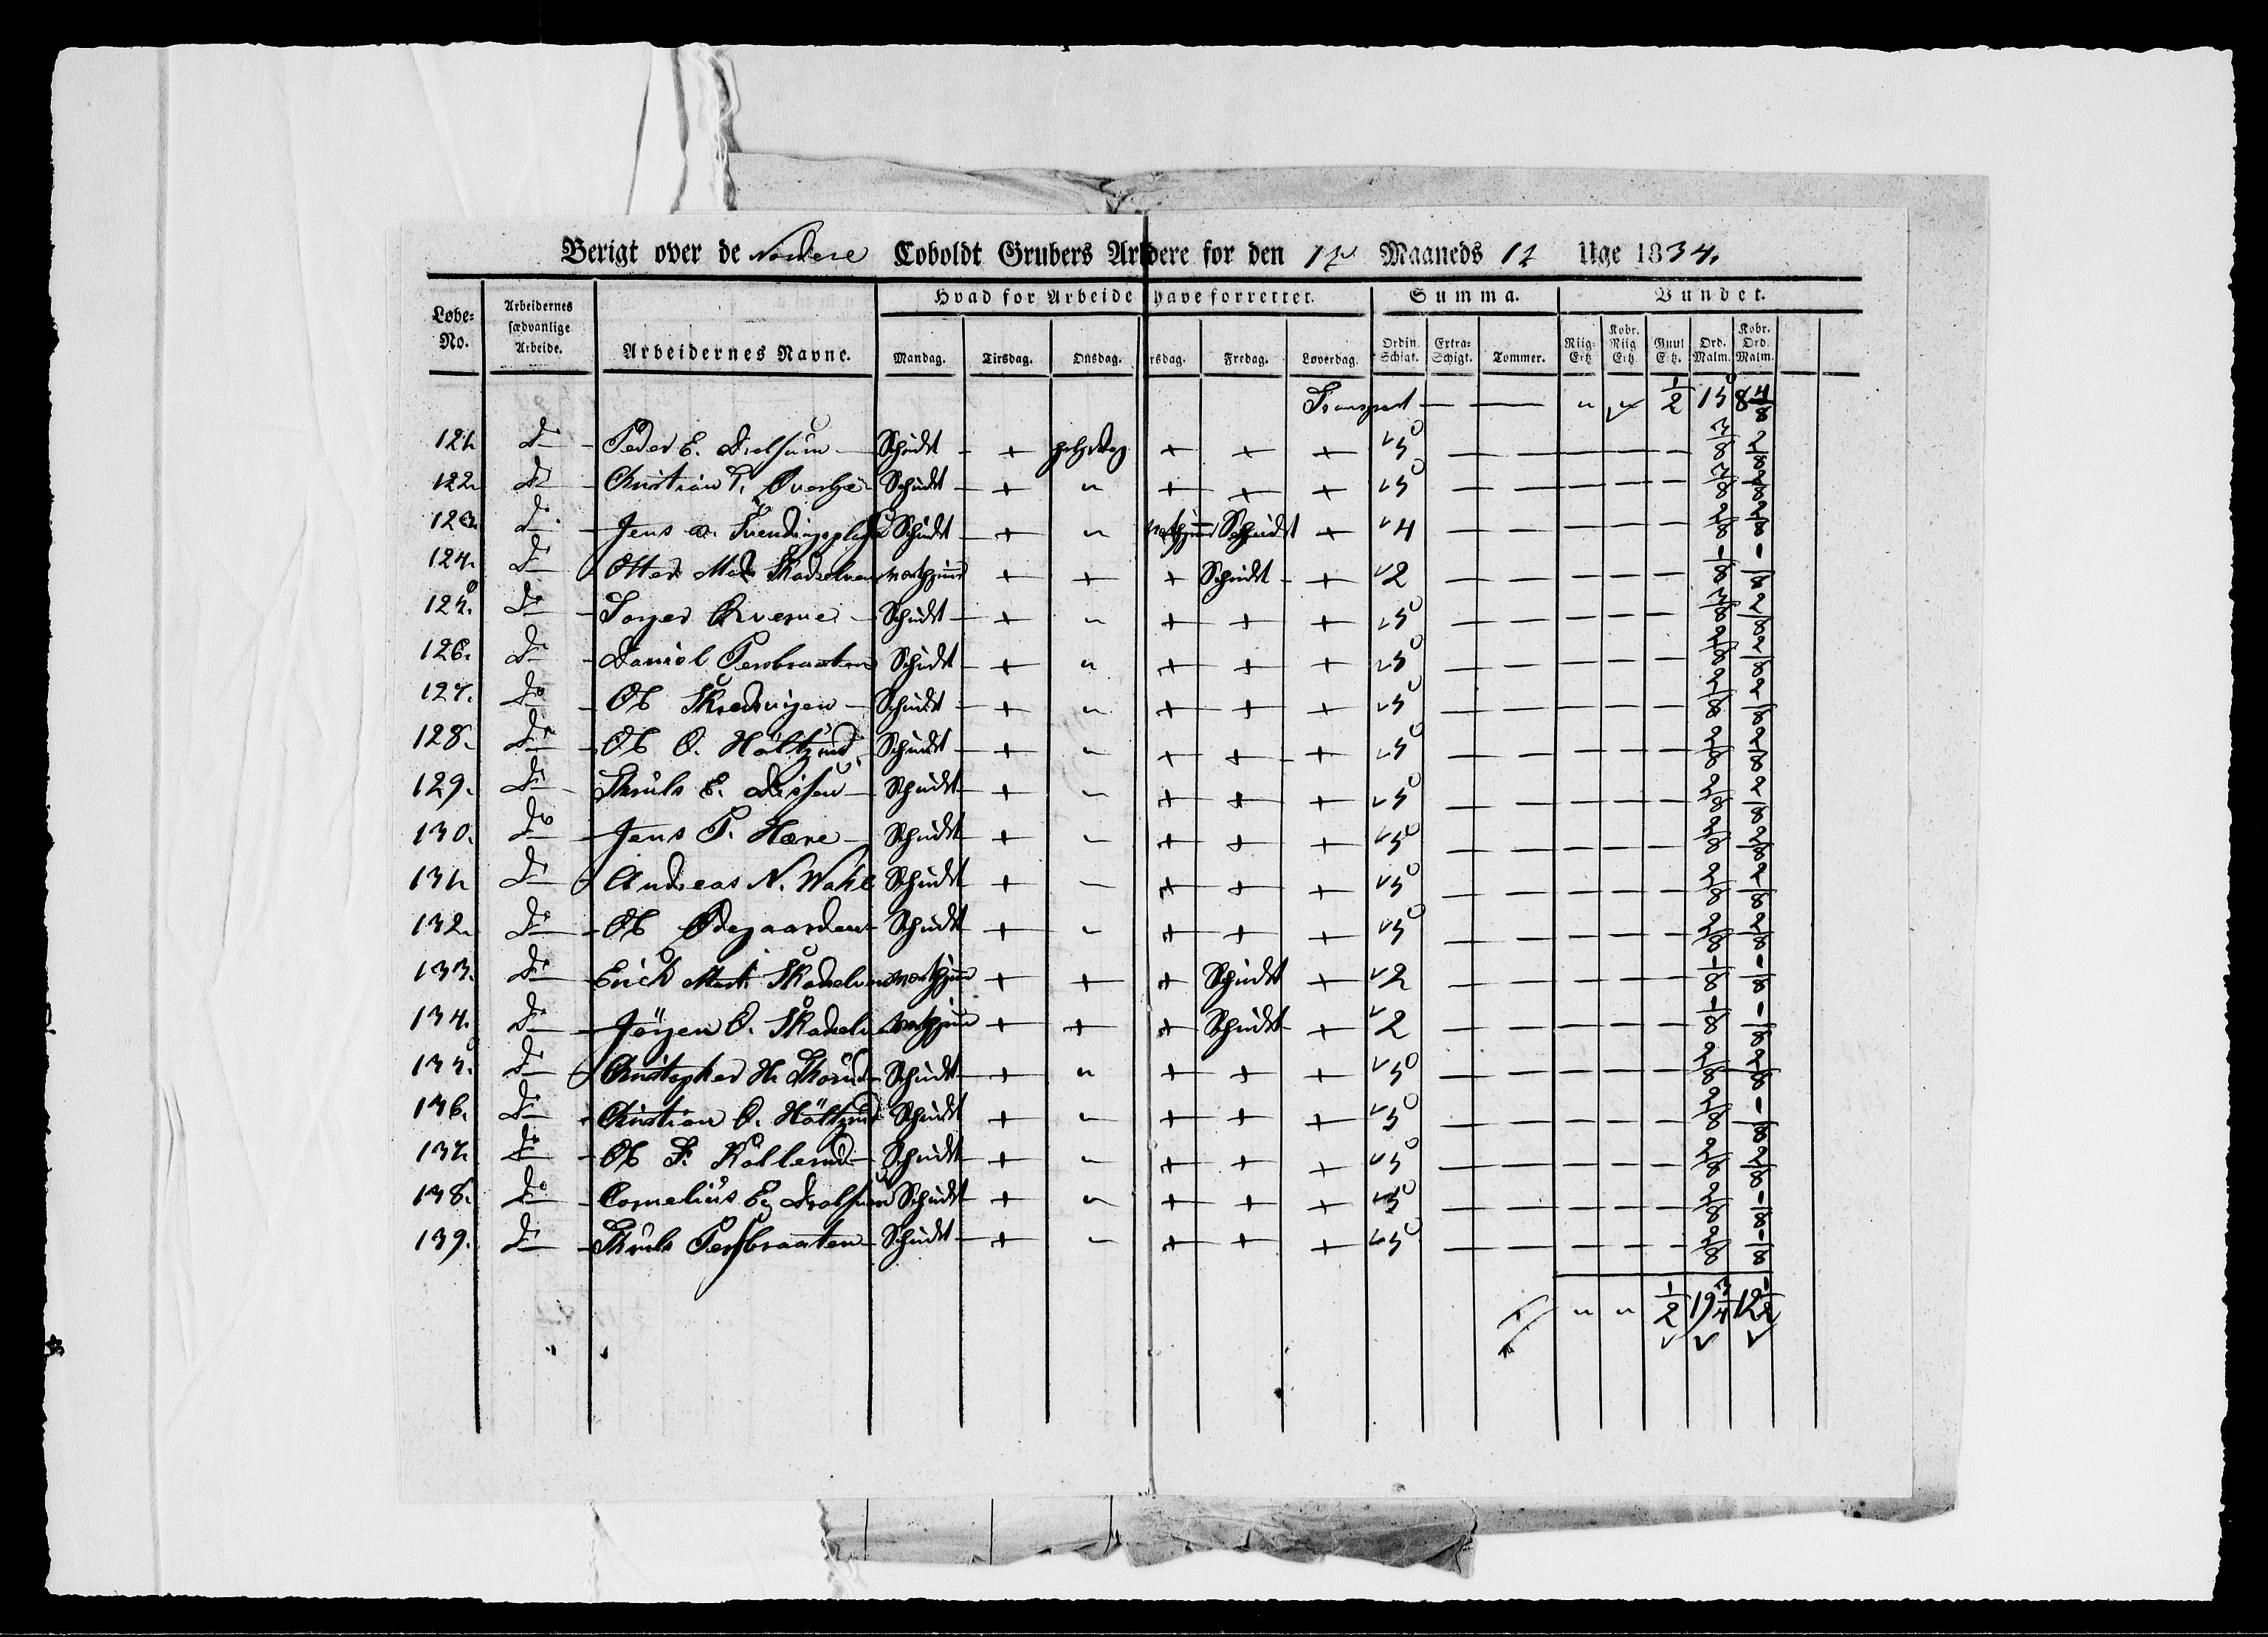 Berigt over de Nordere Coboldt Grubers Ar dere for den 12 Maaneds 12 Uge 1834.
Løbe= No. Arbeidernes sædvanlige Arbeide. Arbeidernes Navne. Hvad for Arbeide have forrettet. Summa. Vundet.
Mandag. Tirsdag. Onsdag. rsdag. Fredag. Løverdag. Ordin. Schigt. Extra= Schigt. Tommer. Riig= Ertz Kobr. Riig Ertz. Guul Ertz. Ord. Malm. Kobr. Ord. Malm.
Transport — — " " 1/2 15 8 4/8
121. Do Peder E. Drolsum Scheidt + helgedag + + + 5 — — — — — 3/8 2/8
122. Do Christian P. Scheidt + " + + + 5 — — — — — 3/8 2/8
123. Do Jens Scheidt + " Scheidt + 4 — — — — — 2/8 2/8
124. Do Otter Mads + + + Scheidt + 2 — — — — — 1/8 1/8
125. Do Scheidt + " + + + 5 — — — — — 3/8 2/8
126. Do Daniel Persbraaten Scheidt + " + + + 5 — — — — — 2/8 2/8
127. Do Ole Skredsvigen Scheidt + " + + + 5 — — — — — 2/8 2/8
128. Do Ole O. Scheidt + " + + + 5 — — — — — 2/8 2/8
129. Do Thruls E. Scheidt + " + + + 5 — — — — — 2/8 2/8
130. Do Jens P. Hære Scheidt + " + + + 5 — — — — — 2/8 2/8
131. Do Andreas N. Wahl Scheidt + " + + + 5 — — — — — 2/8 2/8
132. Do Ole Ødegaarden Scheidt + " + + + 5 — — — — — 2/8 2/8
133. Do Erich + + + Scheidt + 2 — — — — — 1/8 1/8
134. Do Jörgen O. + + + Scheidt + 2 — — — — — 1/8 1/8
135. Do Christopher H. Thorud Scheidt + " + + + 5 — — — — — 2/8 2/8
136. Do Christian O. Scheidt + " + + + 5 — — — — — 2/8 1/8
137. Do Ole F. Kollerud Scheidt + " + + + 5 — — — — — 2/8 2/8
138. Do Cornelius E. Drolsum Scheidt + " + + + 5 — — — — — 2/8 1/8
139. Do Thruls Persbraaten Scheidt + " + + + 5 — — — — — 2/8 1/8
" " 1/2 19 3/4 12 1/2